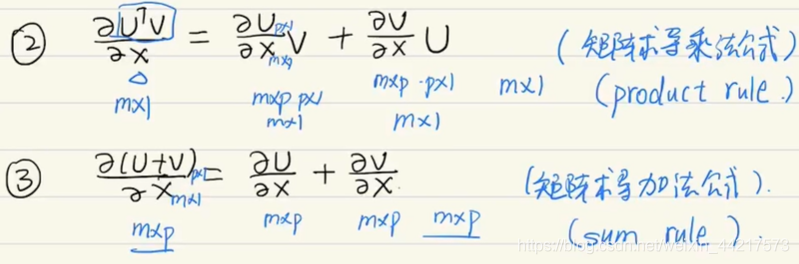 ② ∂UᵀV/∂X = ∂U/∂X V + ∂V/∂X U (矩阵求导乘法公式)
px1 mx1
mx1 mxp px1 mxp·px1 mx1 (product rule.)
mx1 mx1
③ ∂(U+V)/∂X = ∂U/∂X + ∂V/∂X. (矩阵求导加法公式).
px1 mx1
mxp mxp mxp mxp (sum rule).
https://blog.csdn.net/weixin_44217573